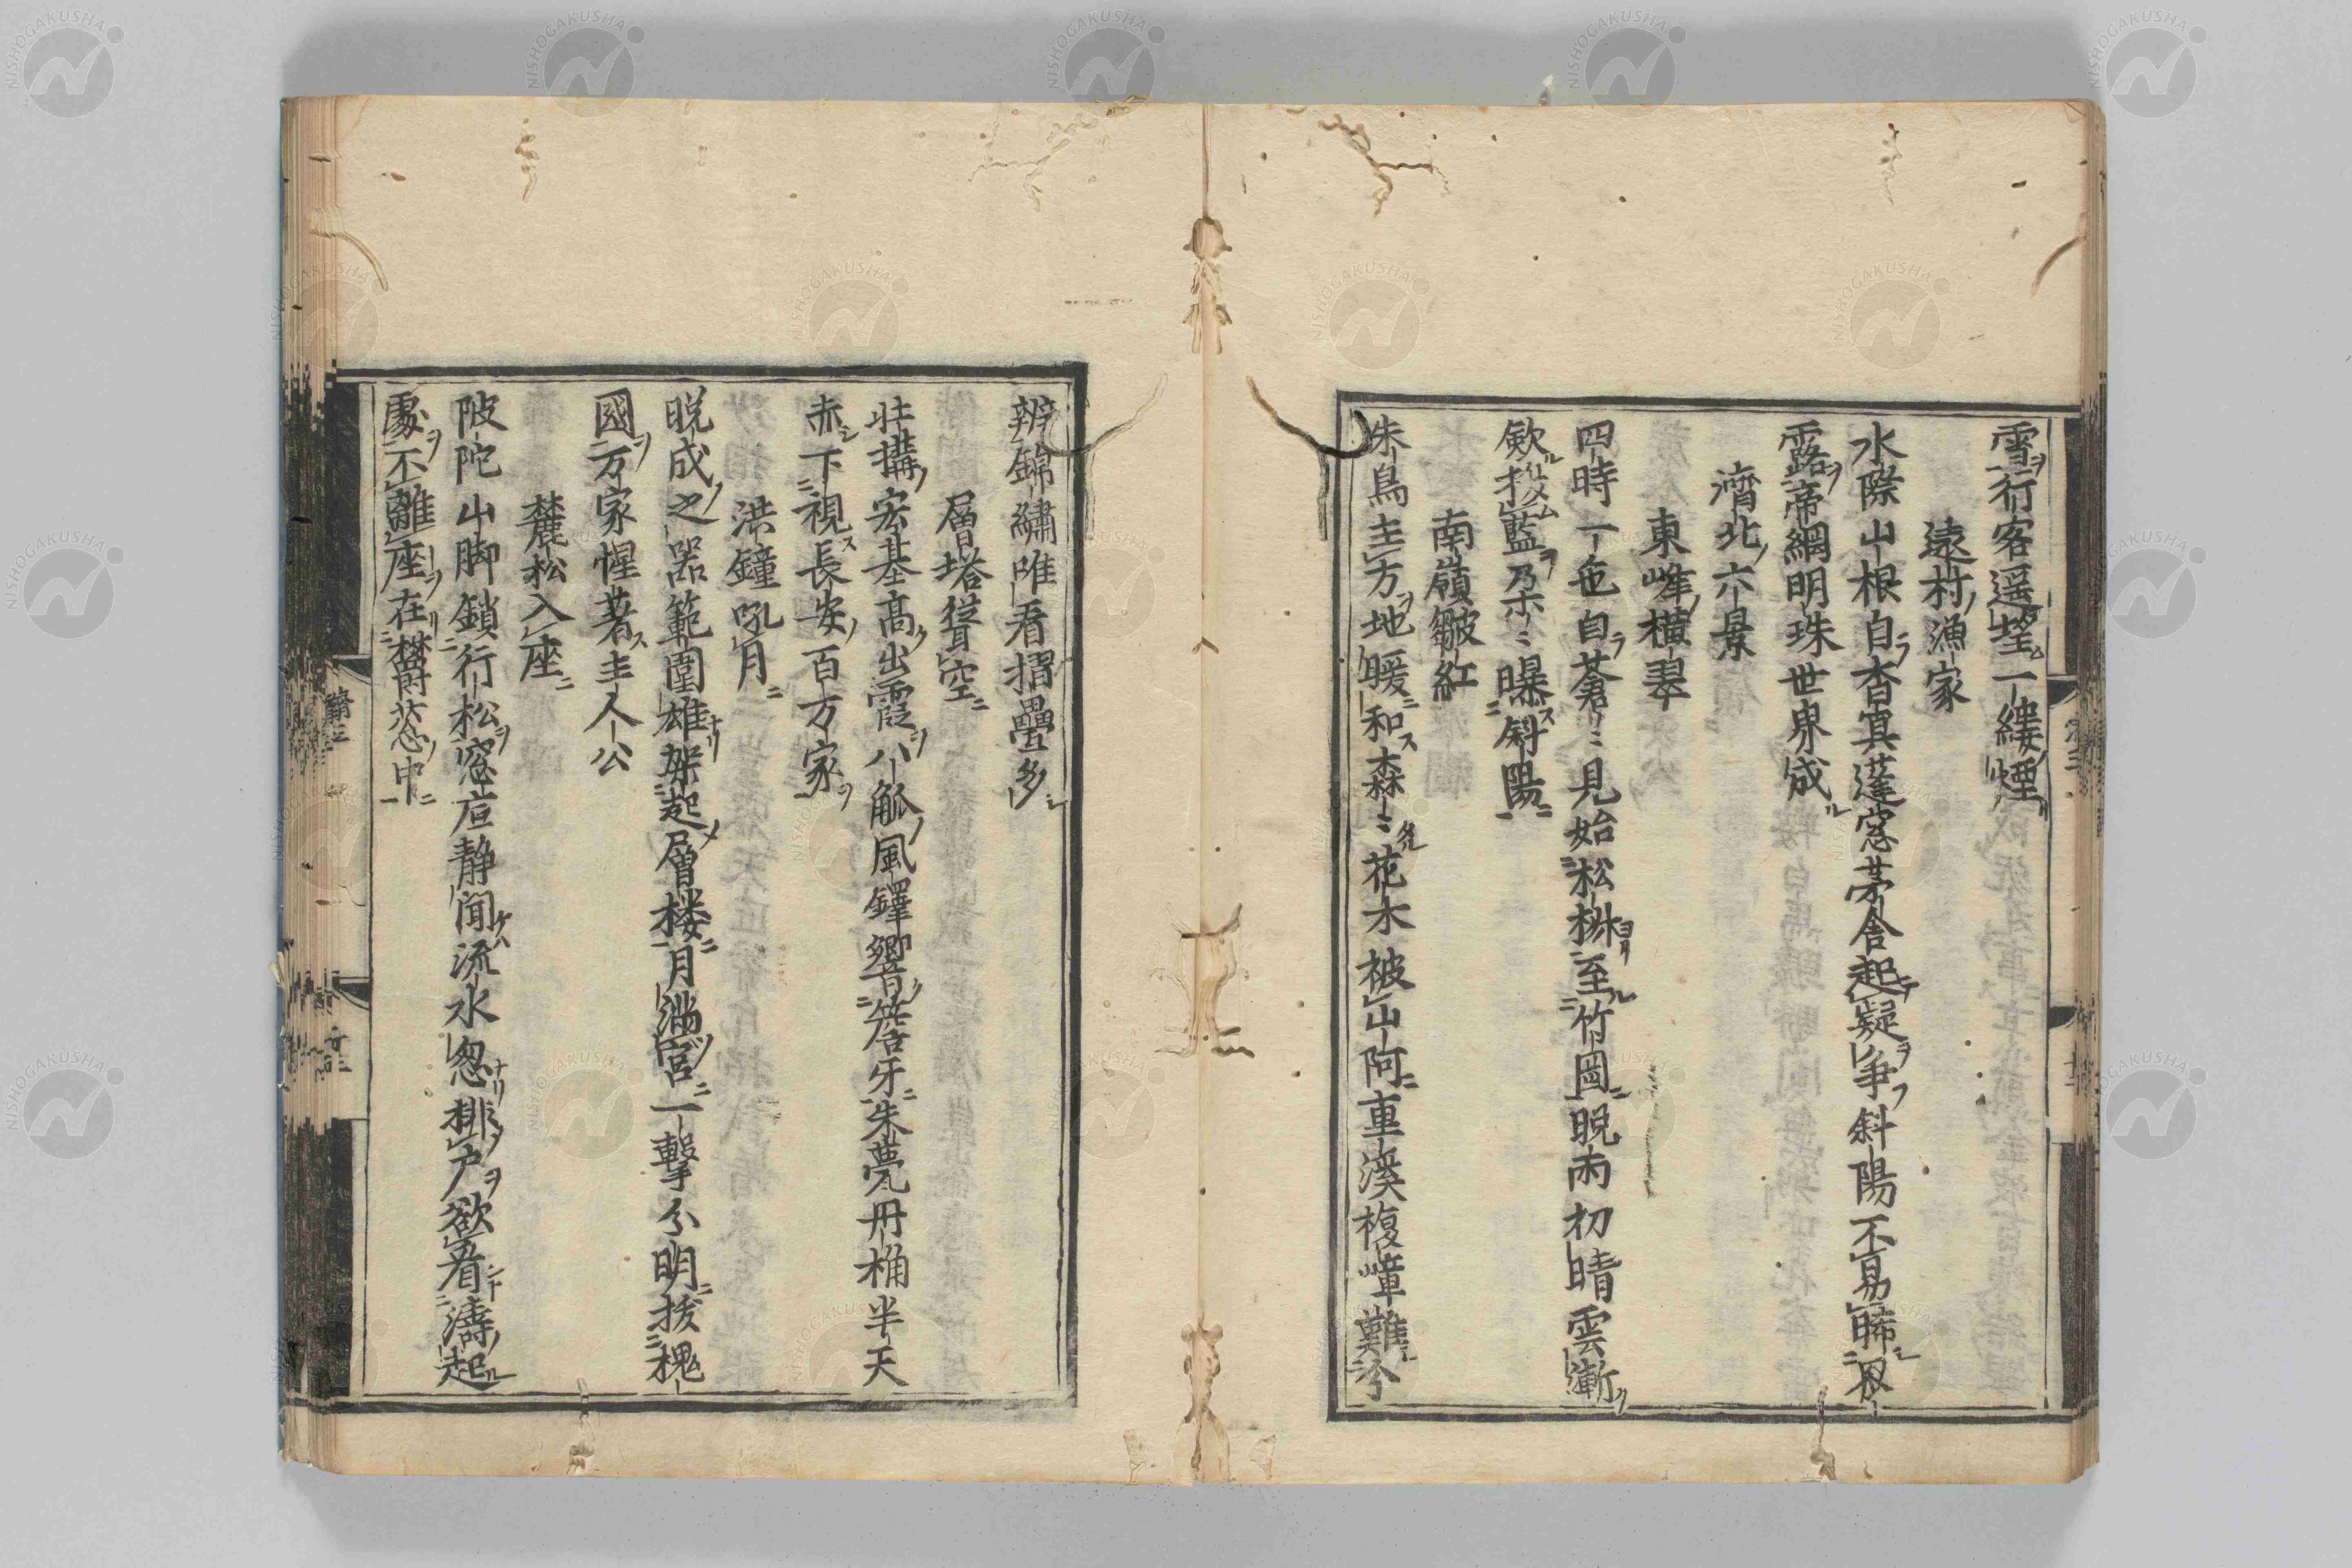 雪行客遥望一縷煙
遠村漁家
水際山根自杳冥蓬窓茅舎起疑争斜陽不易晞冣
露帝網明珠世界成
濟北六景
東峰横翠
四時一色自蒼〻見始松椕至竹岡晩雨初晴雲漸
歛投藍朶〻曝斜陽
南嶺皺紅
朱鳥主方地暖和森〻花木被山阿重溪複嶂難
辨錦繡唯看摺疊多
層塔聳空
壮搆宏基高出霞八觚風鐸響簷牙朱甍丹桷半天
赤下視長安百万家
洪鐘吼月
晩成之器範圍雄架起層楼月満宮一撃分明援槐
國万家惺著主人公
麓松入座
陂陀山脚鎖行松窓戸静聞流水忽排戸欲看濤起
處不離座在欝葱中
NISHOGAKUSHA